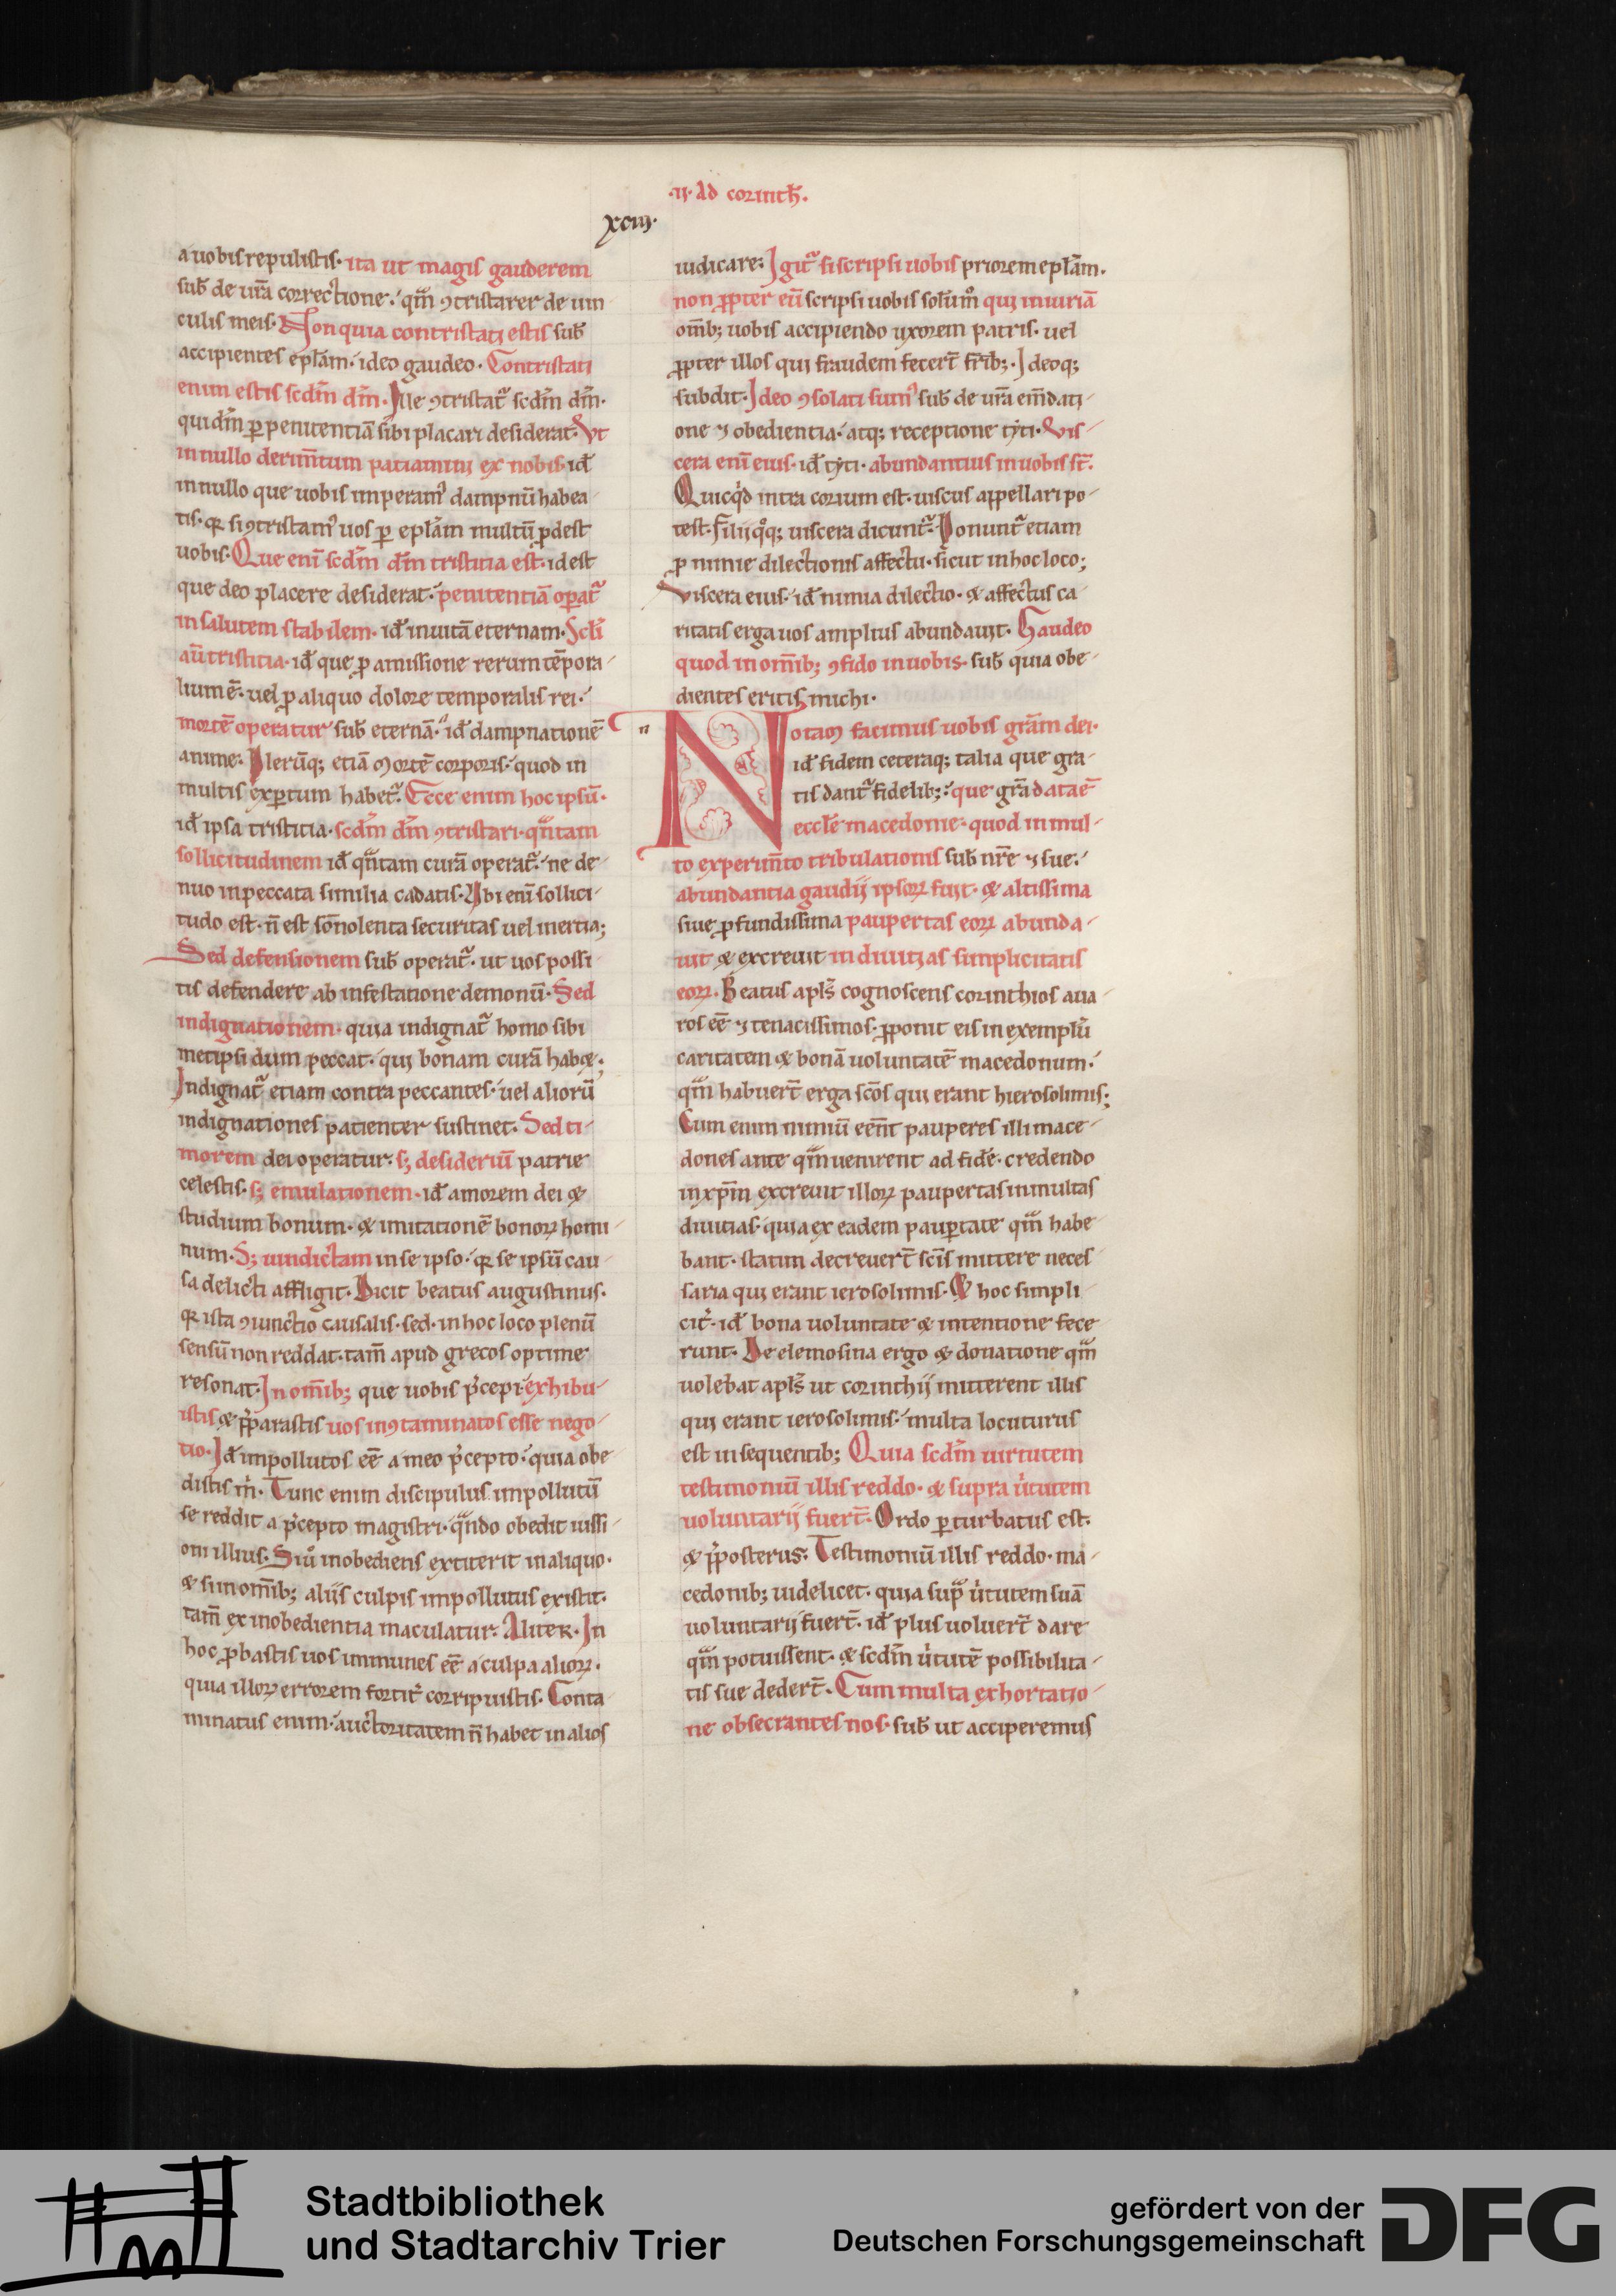 .ij. Ad corinth̄.
xciij.
a uobis repulistis. ita ut magis gauderem
sub̄ de ur̄a correctione. qm̄ ꝯtristarer de uin
culis meis. Non quia contristati estis sub̄
accipientes epl̄am. ideo gaudeo. Contristati
enim estis scdm̄ dm̄. Ille ꝯtristat᷑ scdm̄ dm̄.
qui dm̄ ꝑ penitentiā sibi placari desiderat. Vt
in nullo detrim̄tum patiamini ex nobis. id̄
in nullo que uobis imperam᷒ dampnū habea
tis. qr si ꝯtristam᷒ uos ꝑ epl̄am multū ꝓdest
uobis. Que enī scdm̄ dm̄ tristitia est. id est
que deo placere desiderat. penitentiā oꝑat᷑
in salutem stabilem. id̄ in uitā eternam. Scl̄i
aū tristitia. id̄ que ꝓ amissione rerum tēpora
lium ē. uel ꝓ aliquo dolore temporalis rei.
mortē operatur sub̄ eternā. id̄ dampnationē
anime. Plerūq; etiā mortē corporis. quod in
multis exꝑtum habet᷑. Ecce enim hoc ipsū.
id̄ ipsa tristitia. scdm̄ dm̄ ꝯtristari. qn̄tam
sollicitudinem id̄ qn̄tam curā operat᷑. ne de
nuo in peccata similia cadatis. Vbi enī sollici
tudo est. n̄ est sōnolenta securitas uel inertia;
Sed defensionem sub̄ operat᷑. ut uos possi
tis defendere ab infestatione demonū. Sed
indignationem. quia indignat᷑ homo sibi
metipsi dum peccat. qui bonam curā habet.
Indignat᷑ etiam contra peccantes. uel aliorū
indignationes patienter sustinet. Sed ti
morem dei operatur. s; desideriū patrie
celestis. s; emulationem. id̄ amorem dei &
studium bonum. & imitationē bonoꝝ homi
num. S; uindictam in se ipso. qr se ipsū cau
sa delicti affligit. Dicit beatus augustinus.
qr ista ꝯiunctio causalis. sed. in hoc loco plenū
sensū non reddat. tam̄ apud grecos optime
resonat. In om̄ib; que uobis p̄cepi. exhibu
istis & p̄parastis uos inꝯtaminatos esse nego
tio. Id̄ impollutos eē a meo p̄cepto. quia obe
distis m̄. Tunc enim discipulus impollutū
se reddit a p̄cepto magistri. qn̄do obedit iussi
oni illius. Siu͛ inobediens extiterit in aliquo.
& si in om̄ib; alijs culpis impollutus existit.
tam̄ ex inobedientia maculatur. Aliter. In
hoc ꝓbastis uos immunes eē a culpa alioꝝ.
quia illoꝝ errorem fortit͛ corripuistis. Conta
minatus enim. auctoritatem n̄ habet in alios
iudicare. Igit᷑ si scripsi uobis priorem epl̄am.
non ꝓpter eū scripsi uobis solum̊ qui iniuriā
om̄ib; uobis accipiendo uxorem patris. uel
ꝓpter illos qui fraudem fecert̄ fr̄ib;. Ideoq;
subdit. Ideo ꝯsolati sum᷒ sub̄ de ur̄a em̄dati
one & obedientia. atq; receptione tyti. Vis
cera enī eius. id̄ tyti. abundantius in uobis st̄.
Quicq͛d intra corium est. uiscus appellari po
test. Filij qͦq; uiscera dicunt᷑. Ponunt᷑ etiam
ꝓ nimie dilectionis affectu. sicut in hoc loco;
Viscera eius. id̄ nimia dilectio. & affectus ca
ritatis erga uos amplius abundauit. Gaudeo
quod in om̄ib; ꝯfido in uobis. sub̄ quia obe
dientes eritis michi.
n
Notam facimus uobis gr̄am dei.
id̄ fidem ceteraq; talia que gra
tis dant᷑ fidelib;. que gr̄a data ē
eccl̄e macedonie. quod in mul
to experim̄to tribulationis sub̄ nr̄e & sue.
abundantia gaudij ipsoꝝ fuit. & altissima
siue ꝓfundissima paupertas eoꝝ abunda
uit & excreuit in diuitias simplicitatis
eoꝝ. Beatus apl̄s cognoscens corinthios aua
ros eē & tenacissimos. ꝓponit eis in exemplū
caritatem & bonā uoluntatē macedonum.
qm̄ habuert̄ erga sc̄os qui erant hierosolimis;
Cum enim nimiū eēnt pauperes illi mace
dones ante qm̄ uenirent ad fidē. credendo
in xp̄m excreuit illoꝝ paupertas in multas
diuitias. quia ex eadem pauꝑtate qm̄ habe
bant. statim decreuert̄ sc̄is mittere neces
saria qui erant ierosolimis. & hoc simpli
cit͛. id̄ bona uoluntate & intentione fece
runt. De elemosina ergo & donatione qm̄
uolebat apl̄s ut corinthij mitterent illis
qui erant ierosolimis. multa locuturus
est in sequentib; Quia scdm̄ uirtutem
testimoniū illis reddo. & supra u͛tutem
uoluntarij fuert̄. Ordo ꝑturbatus est.
& p̄posterus. Testimoniū illis reddo. ma
cedonib; uidelicet. quia sup̄ u͛tutem suā
uoluntarij fuert̄. id̄ plus uoluert̄ dare
qm̄ potuissent. & scdm̄ u͛tutē possibilita
tis sue dedert̄. Cum multa exhortatio
ne obsecrantes nos. sub̄ ut acciperemus
Stadtbibliothek
und Stadtarchiv Trier
gefördert von der
Deutschen Forschungsgemeinschaft
DFG